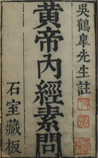 吳鶴皋先生註
黃帝內經素問
石室藏板